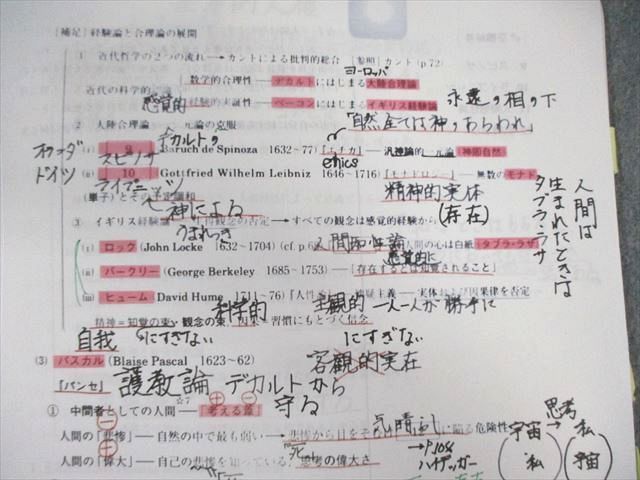 [補足] 経験論と合理論の展開
① 近代哲学の2つの流れ→カントによる批判的総合 [参照] カント (p.72)
ヨーロッパ
数学的合理性―デカルトにはじまる大陸合理論
近代の科学的
感覚的
経験的実証性―ベーコンにはじまるイギリス経験論
永遠の相の下
② 大陸合理論 元論の克服
デカルトの
「自然全ては神のあらわれ」
オランダ
(i) 9 スピノザ Baruch de Spinoza 1632~77) 『エチカ』― 汎神論的一元論「神即自然」
ethics
ドイツ
(ii) 10 Gottfried Wilhelm Leibniz 1646~1716) 『モナドロジー』― 無数のモナド
ライプニッツ
精神的実体
(単子) とその予定調和
神による
(存在)
人間は生まれたときはタブラ・ラサ
③ イギリス経験論 得観念の否定→すべての観念は感覚的経験から
うまれつき
(i) ロック (John Locke 1632~1704) (cf. p.6 人間の心は白紙「タブラ・ラサ」
人間知性論
感覚的に
(ii) バークリー (George Berkeley 1685~1753)―「存在するとは知覚されること」
(iii) ヒューム David Hume 1711~76) 『人性 懐疑主義― 実体および因果律を否定
科学的
主観的 一人一人が勝手に
精神=知覚の束, 観念の束, 因果=習慣にもとづく信念
自我
にすぎない
にすぎない
客観的実在
(3) パスカル (Blaise Pascal 1623~62)
『パンセ』 護教論 デカルトから守る
☆7
① 中間者としての人間―「考える葦」
人間の「悲惨」― 自然の中で最も弱い―悲惨から目をそ に陥る危険性
気晴し
→p.108
ハイデッガー
死
人間の「偉大」― 自己の悲惨を知っている 思考の偉大さ
思考
宇宙 私
私 宇宙